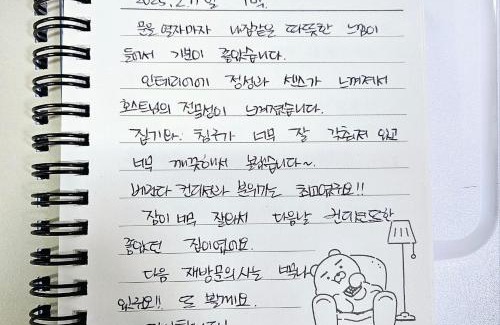 문을 열자마자 내집같은 따뜻한 느낌이
들어서 기분이 좋았습니다.
인테리어에 정성과 센스가 느껴져서
호스트님의 전문성이 느껴졌습니다.
침구가 너무 잘 갖춰져 있고
너무 깨끗해서 놀랐습니다~
컨디션과 분위기는 최고였구요!!
잠이 너무 잘와서 다음날 컨디션또한
좋았던 집이였어요.
다음 재방문의사는
있구요!! 또 뵐게요.